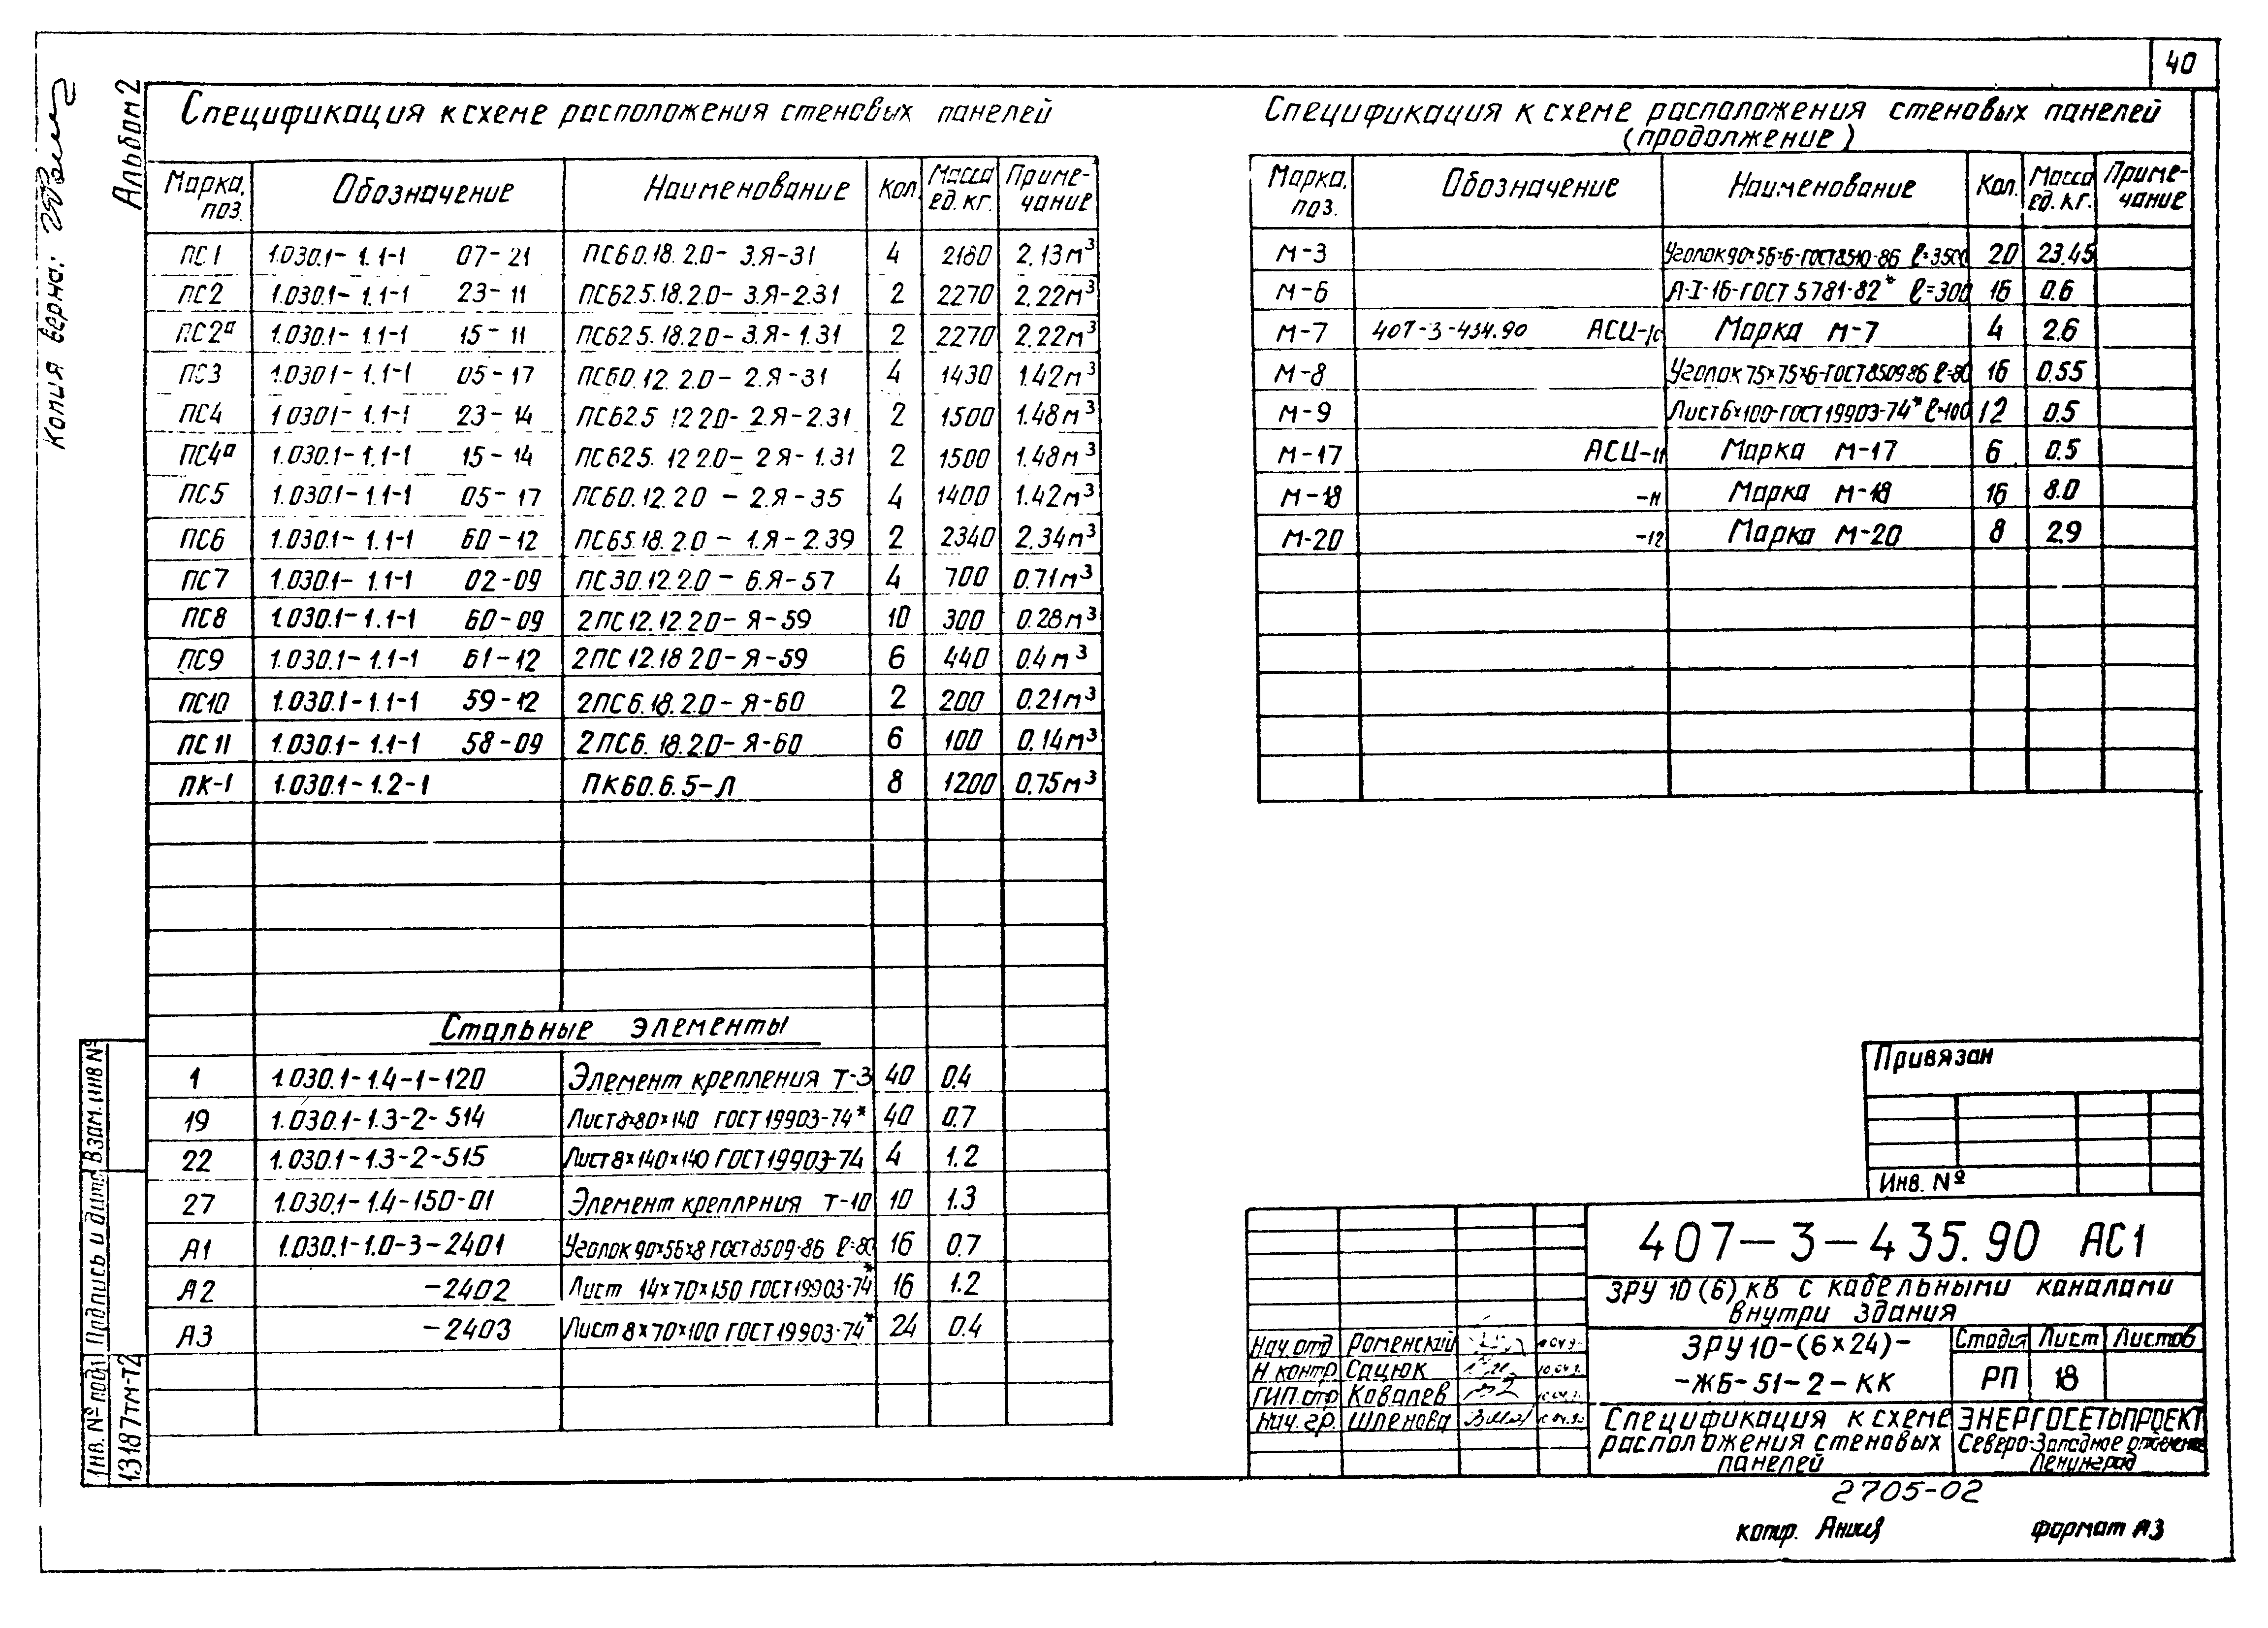 40
Альбом 2
Копия верна:
Спецификация к схеме расположения стеновых панелей
Марка, поз. Обозначение Наименование Кол. Масса ед. кг. Приме-чание
ПС1 1.030.1-1.1-1 07-21 ПС60.18.2.0-3.Я-31 4 2180 2.13м³
ПС2 1.030.1-1.1-1 23-11 ПС62.5.18.2.0-3.Я-2.31 2 2270 2.22м³
ПС2ª 1.030.1-1.1-1 15-11 ПС62.5.18.2.0-3.Я-1.31 2 2270 2.22м³
ПС3 1.030.1-1.1-1 05-17 ПС60.12.2.0-2.Я-31 4 1430 1.42м³
ПС4 1.030.1-1.1-1 23-14 ПС62.5 12 2.0-2.Я-2.31 2 1500 1.48м³
ПС4ª 1.030.1-1.1-1 15-14 ПС62.5. 12 2.0-2 Я-1.31 2 1500 1.48м³
ПС5 1.030.1-1.1-1 05-17 ПС60.12.20-2.Я-35 4 1400 1.42м³
ПС6 1.030.1-1.1-1 60-12 ПС65.18.2.0-1.Я-2.39 2 2340 2.34м³
ПС7 1.030.1-1.1-1 02-09 ПС30.12.2.0-6.Я-57 4 700 0.71м³
ПС8 1.030.1-1.1-1 60-09 2ПС12.12.20-Я-59 10 300 0.28м³
ПС9 1.030.1-1.1-1 61-12 2ПС12.18 20-Я-59 6 440 0.4м³
ПС10 1.030.1-1.1-1 59-12 2ПС6.18.2.0-Я-60 2 200 0.21м³
ПС11 1.030.1-1.1-1 58-09 2ПС6.18.2.0-Я-60 6 100 0.14м³
ПК-1 1.030.1-1.2-1 ПК60.6.5-Л 8 1200 0.75м³
Стальные элементы
1 1.030.1-1.4-1-120 Элемент крепления Т-3 40 0.4
19 1.030.1-1.3-2-514 Лист8×80×140 ГОСТ19903-74* 40 0.7
22 1.030.1-1.3-2-515 Лист8×140×140 ГОСТ19903-74 4 1.2
27 1.030.1-1.4-150-01 Элемент крепления Т-10 10 1.3
А1 1.030.1-1.0-3-2401 Уголок90×56×8 ГОСТ8509-86 ℓ=80 16 0.7
А2 -2402 Лист 14×70×150 ГОСТ19903-74* 16 1.2
А3 -2403 Лист8×70×100 ГОСТ19903-74* 24 0.4
Спецификация к схеме расположения стеновых панелей
(продолжение)
Марка, поз. Обозначение Наименование Кол. Масса ед. кг. Приме-чание
М-3 Уголок90×56×6-ГОСТ8510-86 ℓ=3500 20 23.45
М-6 А-I-16-ГОСТ 5781-82* ℓ=300 16 0.6
М-7 407-3-434.90 АСИ-10 Марка М-7 4 2.6
М-8 Уголок75×75×6-ГОСТ8509-86 ℓ=80 16 0.55
М-9 Лист6×100-ГОСТ19903-74* ℓ=100 12 0.5
М-17 АСИ-11 Марка М-17 6 0.5
М-18 -11 Марка М-18 16 8.0
М-20 -12 Марка М-20 8 2.9
Привязан
Инв. №
407-3-435.90 АС1
ЗРУ 10(6) кВ с кабельными каналами
внутри здания
Нач.отд Роменский
Н контр Сацюк
ГИП.отр Ковалев
Нач.гр. Шленова
ЗРУ10-(6×24)-
-ЖБ-51-2-КК
Стадия Лист Листов
РП 18
Спецификация к схеме
расположения стеновых
панелей
ЭНЕРГОСЕТЬПРОЕКТ
Северо-Западное отделение
Ленинград
Взам. инв №
Подпись и дата
Инв. № подл
13187тм-т2
2705-02
копир.
формат А3